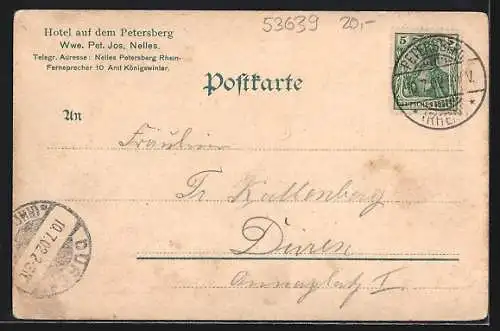 53639 20,-
Hotel auf dem Petersberg
Wwe. Pet. Jos. Nelles.
Telegr. Adresse: Nelles Petersberg Rhein-
Fernsprecher 10 Amt Königswinter.
5
PETERSBERG
Postkarte
(RHEI
An
Fräulein
Tr. Kaltenberg
Düren
Annaplatz I.
10.7.02. 2-3N.
DÜREN